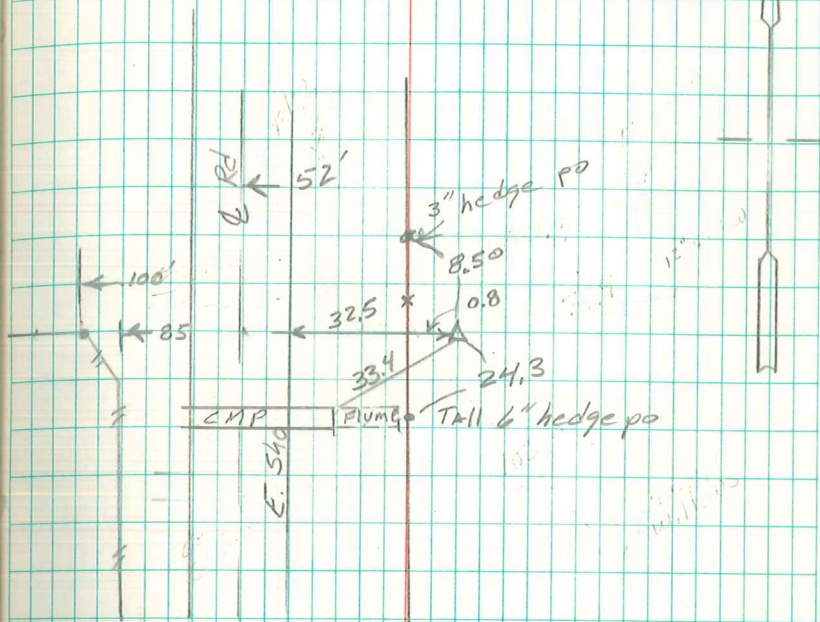 ℄ Rd
52'
3" hedge po
8.50
100'
32.5
0.8
85
33.4
24.3
CMP
Flume
Tall 6" hedge po
E. Shd
12"